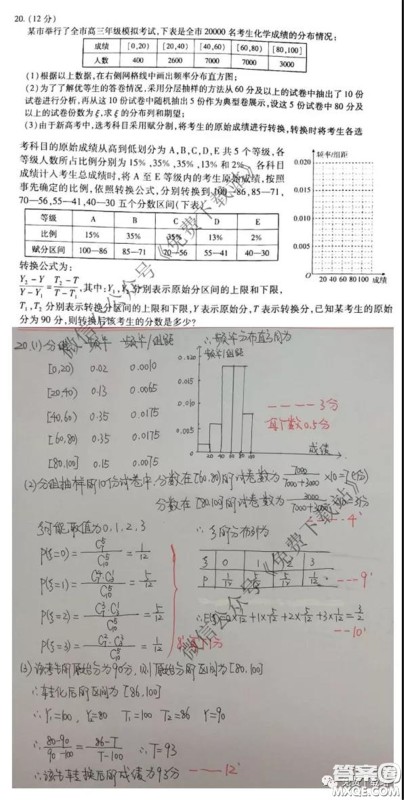 20.(12分)
某市举行了全市高三年级模拟考试,下表是全市20000名考生化学成绩的分布情况:
成绩 [0,20) [20,40) [40,60) [60,80) [80,100]
人数 400 2600 7000 7000 3000
(1)根据以上数据,在右侧网格线中画出频率分布直方图;
(2)为了了解优等生的答卷情况,采用分层抽样的方法从60分及以上的试卷中抽出了10份
试卷进行分析,再从这10份试卷中随机抽出5份作为典型卷展示,设这5份试卷中80分及
以上的试卷份数为ξ,求ξ的分布列和期望;
(3)由于新高考中,选考科目采用赋分制,将考生的原始成绩进行转换,转换时将考生各选
考科目的原始成绩从高到低划分为A,B,C,D,E共5个等级,各
等级人数所占比例分别为15%,35%,35%,13%和2%,各科目
成绩计入考生总成绩时,将A至E等级内的考生原始成绩,按照
事先确定的比例,依照转换公式,分别转换到100—86,85—71,
70—56,55—41,40—30五个分数区间(下表)
等级 A B C D E
比例 15% 35% 35% 13% 2%
赋分区间 100—86 85—71 70—56 55—41 40—30
频率/组距
0.020
0.015
0.010
0.005
20 40 60 80 100 成绩
转换公式为:
Y₂-Y/Y-Y₁=T₂-T/T-T₁,其中:Y₁,Y₂分别表示原始分区间的上限和下限,
T₁,T₂分别表示转换分区间的上限和下限,Y表示原始分,T表示转换分,已知某考生的原始
分为90分,则转换后该考生的分数是多少?
20.(1)分组 频率 频率/组距
[0,20) 0.02 0.0010
[20,40) 0.13 0.0065
[40,60) 0.35 0.0175
[60,80) 0.35 0.0175
[80,100] 0.15 0.0075
∴频率分布直方图为
频率/组距
0.020
0.015
0.010
0.005
20 40 60 80 100 成绩
3分
每个数0.5分
(2)分组抽样的10份试卷中,分数在[60,80)的试卷数为7000/7000+3000×10=7(份)
分数在[80,100]的试卷数为3000/7000+3000
4'
ξ可能取值为0,1,2,3
P(ξ=0)= =1/12
P(ξ=1)= =5/12
P(ξ=2)= =5/12
P(ξ=3)= =1/12
∴ξ的分布列为
ξ 0 3
P 1/12 5/12 1/12
9'
∴E(ξ)=0×1/12+1×5/12+2×5/12+3×1/12=3/2
10'
(3)该考生的原始分为90分,则原始分的区间为[80,100]
∴转化后的区间为[86,100]
∴Y₁=100 Y₂=80 T₁=100 T₂=86 Y=90
∴80-90/90-100=86-T/T-100 ∴T=93
∴该考生转换后的成绩为93分 12'
微信公众号《免费下载站》
微信公众号《免费下载站》
答案圈